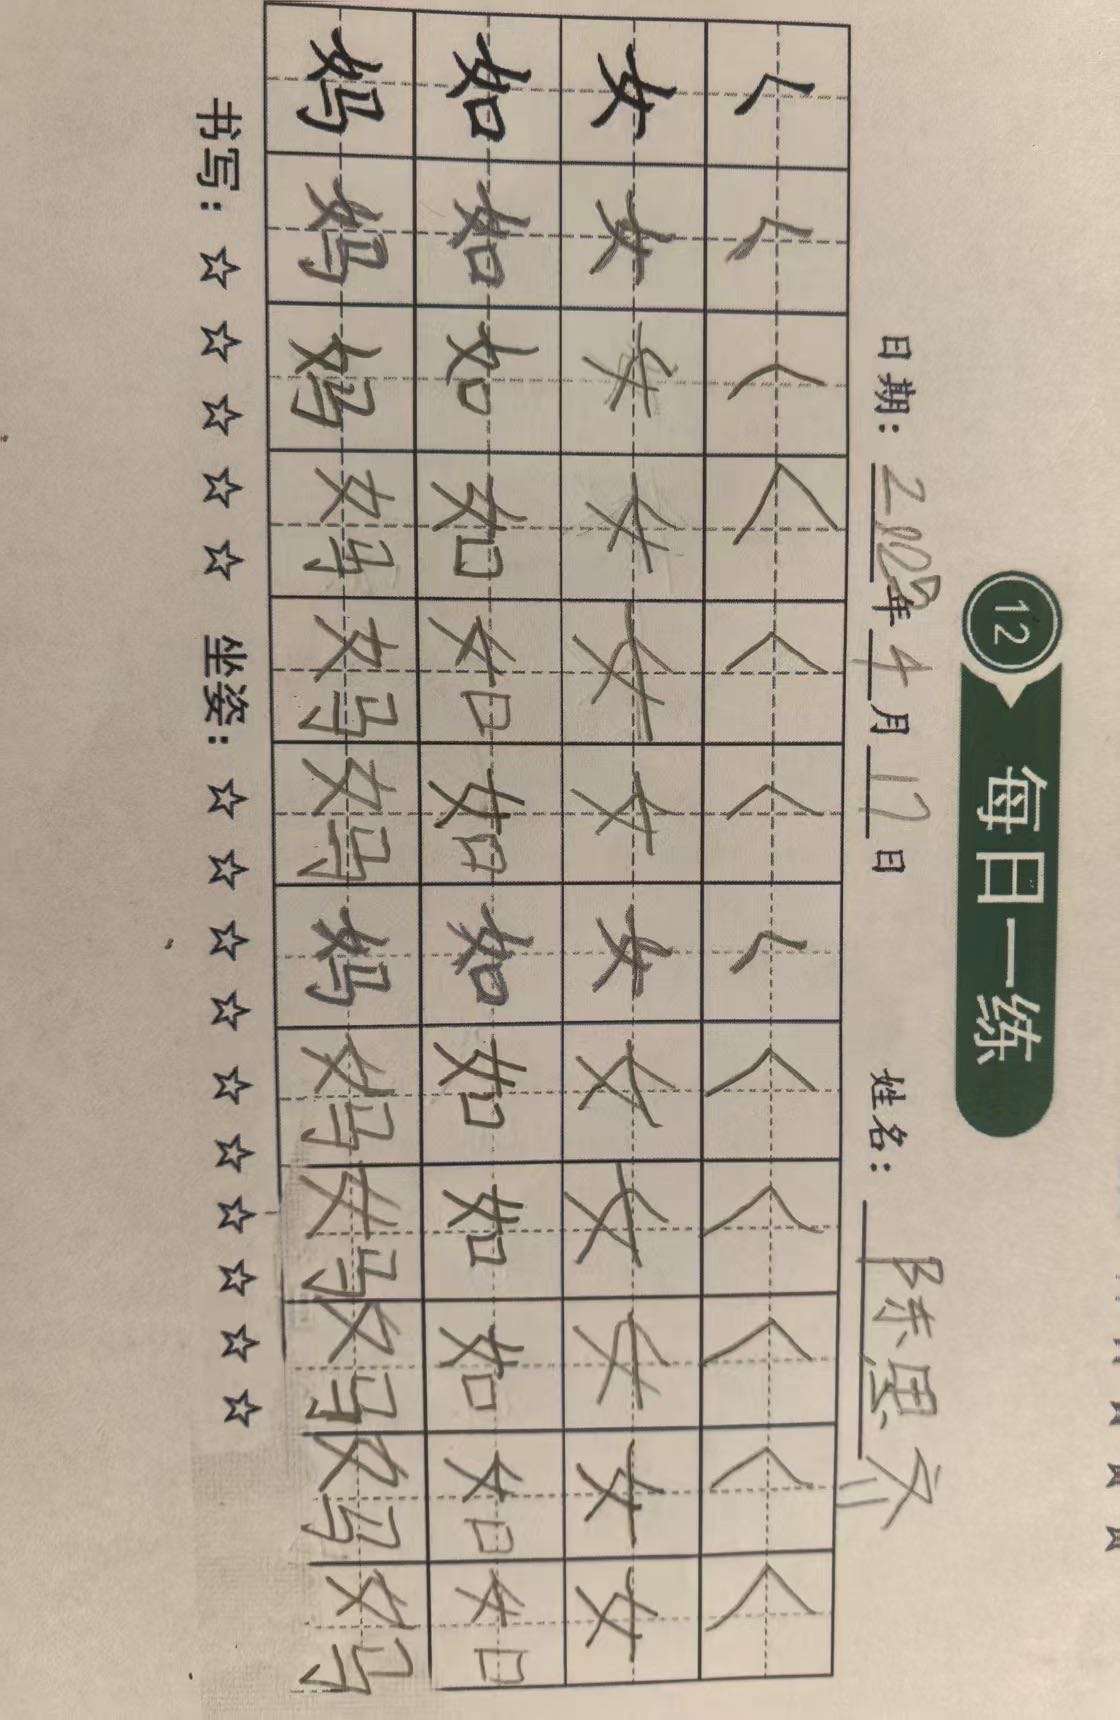 12 每日一练
日期： 年 4 月 17 日 姓名： 陈思齐
㇛ ㇛ ㇛ ㇛ ㇛ ㇛ ㇛ ㇛ ㇛ ㇛ ㇛ ㇛
女 女 女 女 女 女 女 女 女 女 女 女
如 如 如 如 如 如 如 如 如 如 如 如
妈 妈 妈 妈 妈 妈 妈 妈 妈 妈 妈 妈
书写：☆ ☆ ☆ ☆ ☆ 坐姿：☆ ☆ ☆ ☆ ☆ ☆ ☆ ☆ ☆ ☆